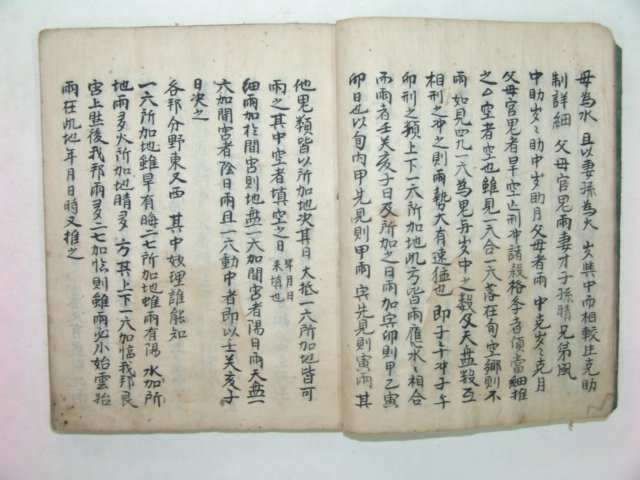 母為水 且以妻孫為火 岁與中而相較生克助
制詳細 父母官鬼雨妻才子孫晴兄弟風
中助岁〻助中岁助月父母者雨 中克岁〻克月
父母官鬼者旱空亡刑冲諸殺格季者傎當細推
之亼空者空也雖見一六合一六落在旬空鄉則不
雨 如見四九一六為鬼每岁中之数及天盤殺互
相刑之冲之則雨勢大有速猛也 即子〻午冲子午
卯刑之類上下一六所加地此方皆雨應水〻相合
而雨者壬癸亥子日及所加之日雨加寅卯則甲乙寅
卯日也以旬内甲先見則甲雨 寅先見則寅雨其
他鬼類皆以所加地決其日 大抵一六所加地皆可
雨之其中空者填空之日 年月日来填也
細雨加於間宮則地盤一六加間宮者陽日雨天盤一
六加間宮者陰日雨且一六動中者即以壬癸亥子
日決之
各邦分野東又西 其中妙理誰能知
一六所加地雖旱有晦二七所加地雖雨有陽 水加所
地雨多火所加地晴多 方其上下一六加臨我邦艮
宮上然後我邦雨多二七加臨則雖雨必小始雲抬
雨在此地年月日時又推之